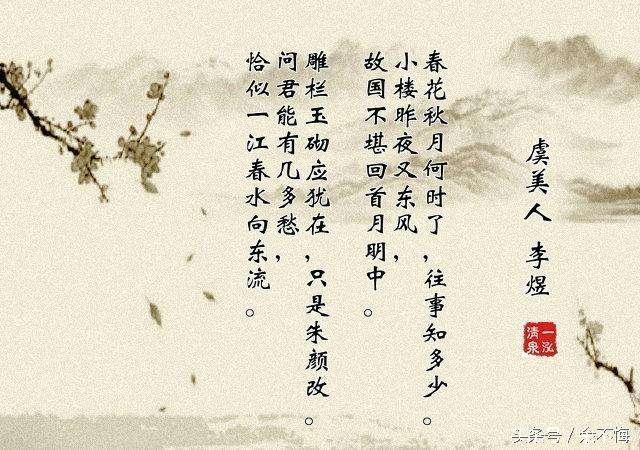 虞美人 李煜
春花秋月何时了，往事知多少。
小楼昨夜又东风，
故国不堪回首月明中。
雕栏玉砌应犹在，只是朱颜改。
问君能有几多愁，
恰似一江春水向东流。
一泓清泉
头条号／弁不悔